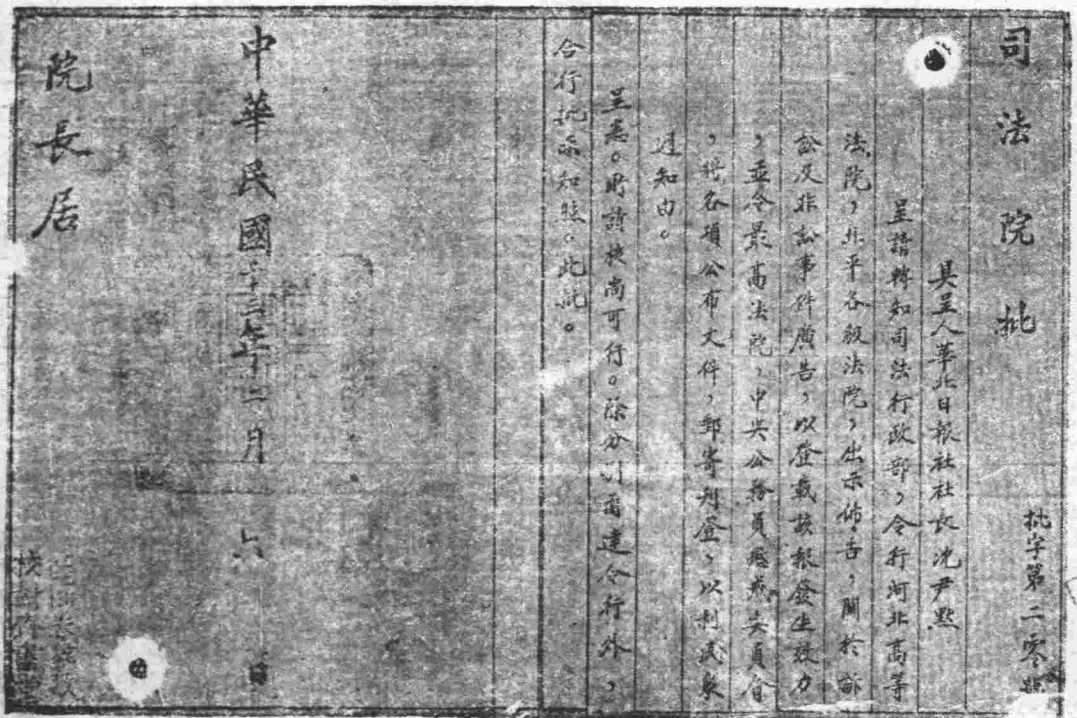 司法院批
批字第二零
具呈人華北日報社社長沈尹默
呈請轉知司法行政部，令行河北高等
法院，北平各級法院，出示佈告，關於訴
訟及非訟事件廣告，以登載該報發生效力
，並令最高法院，中央公務員懲戒委員會
，將各項公布文件，郵寄刊登，以利民衆
週知由。
呈悉。所請核尚可行。除分別函達令行外，
合行批示知照。此批。
中華民國二十三年十二月六日
院長居